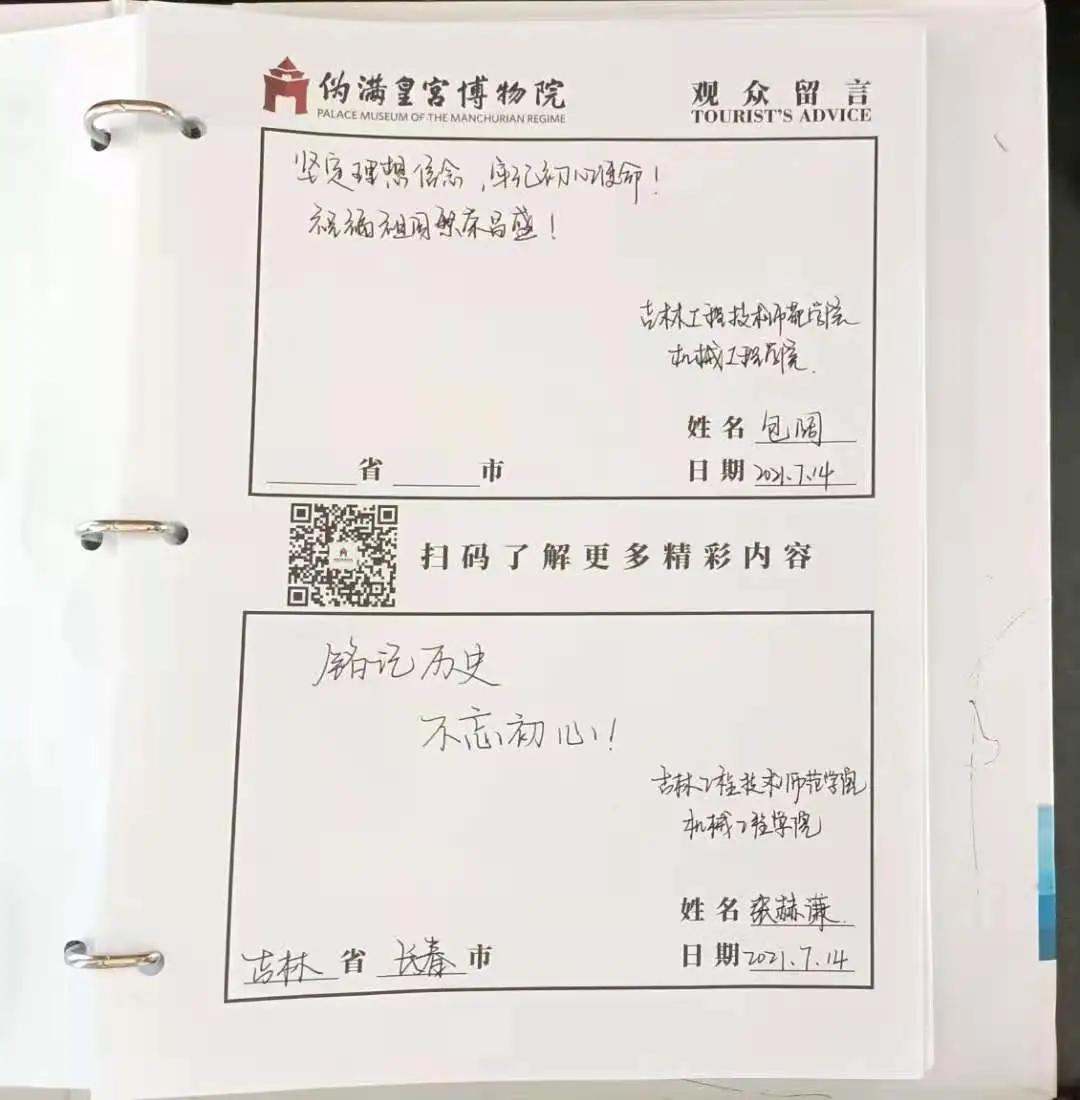 伪满皇宫博物院
PALACE MUSEUM OF THE MANCHURIAN REGIME
观众留言
TOURIST'S ADVICE
坚定理想信念，牢记初心使命！
祝福祖国繁荣昌盛！
吉林工程技术师范学院
机械工程学院.
姓名 包阔
省 市
日期 2021.7.14
扫码了解更多精彩内容
铭记历史
不忘初心！
吉林工程技术师范学院
机械工程学院
姓名 张赫谦
吉林 省 长春 市
日期 2021.7.14